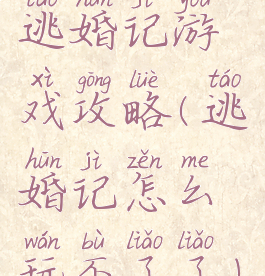 táo hūn jì yóu
逃婚记游
xì gōng lüè táo
戏攻略(逃
hūn jì zěn me
婚记怎么
wán bù liǎo liǎo
玩不了了)